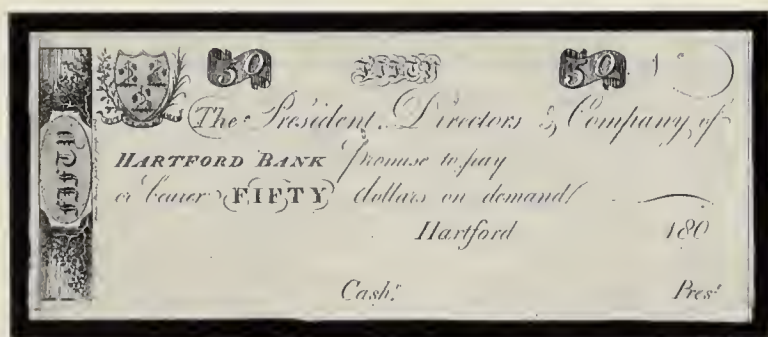 50 FIFTY 50
The President, Directors & Company, of
HARTFORD BANK promise to pay
or bearer FIFTY dollars on demand
Hartford 180
Cashr. Prest
FIFTY